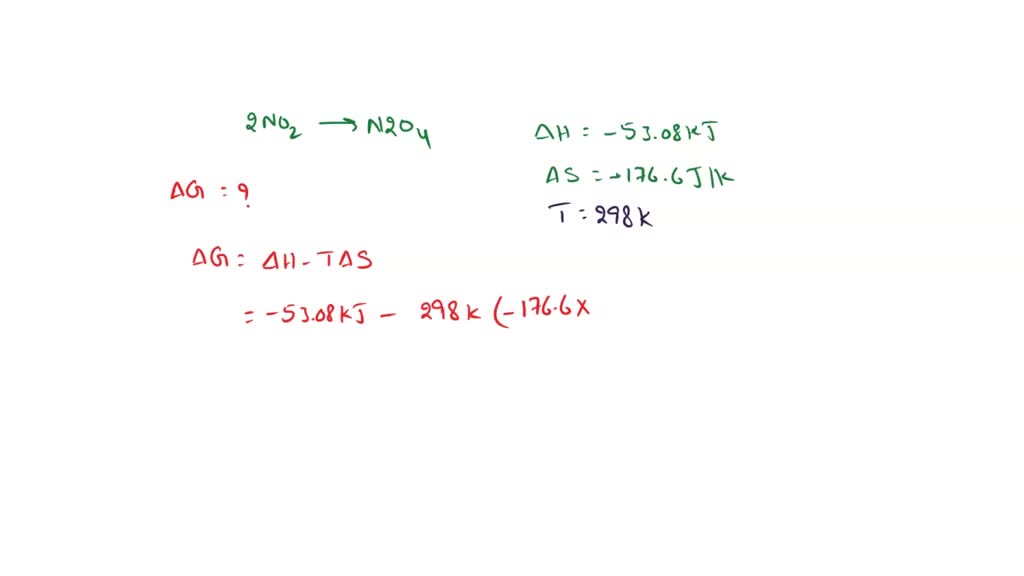 2NO₂ → N2O₄
ΔH = -53.08KJ
ΔS = -176.6J/K
ΔG = ?
T = 298K
ΔG = ΔH - TΔS
= -53.08KJ - 298K (-176.6x